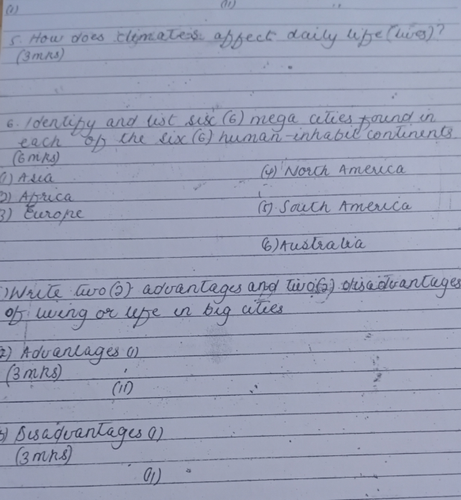 (i) (ii)
5. How does climates affect daily life (lives)?
(3mks)
6. Identify and list six (6) mega cities found in
each of the six (6) human-inhabit continents
(6mks)
(1) Asia (4) North America
2) Africa
3) Europe (5) South America
(6) Australia
) Write two (2) advantages and two (2) disadvantages
of living or life in big cities
a) Advantages (i)
(3mks)
(ii)
b) Disadvantages (i)
(3mks)
(ii)